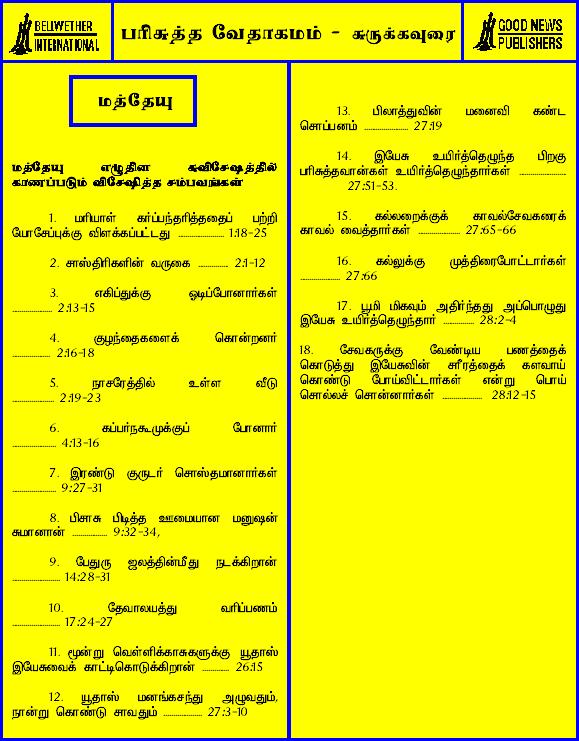 BELLWETHER
INTERNATIONAL
பரிசுத்த வேதாகமம் - சுருக்கவுரை
GOOD NEWS
PUBLISHERS
மத்தேயு
மத்தேயு எழுதின சுவிசேஷத்தில்
காணப்படும் விசேஷித்த சம்பவங்கள்
1. மரியாள் கர்ப்பந்தரித்ததைப் பற்றி
யோசேப்புக்கு விளக்கப்பட்டது ..................... 1:18-25
2. சாஸ்திரிகளின் வருகை .............. 2:1-12
3. எகிப்துக்கு ஓடிப்போனார்கள்
.................. 2:13-15
4. குழந்தைகளைக் கொன்றனர்
................. 2:16-18
5. நாசரேத்தில் உள்ள வீடு
................... 2:19-23
6. கப்பர்நகூமுக்குப் போனார்
.................... 4:13-16
7. இரண்டு குருடர் சொஸ்தமானார்கள்
.................... 9:27-31
8. பிசாசு பிடித்த ஊமையான மனுஷன்
சுமானான் ................ 9:32-34,
9. பேதுரு ஜலத்தின்மீது நடக்கிறான்
...................... 14:28-31
10. தேவாலயத்து வரிப்பணம்
...................... 17:24-27
11. மூன்று வெள்ளிக்காசுகளுக்கு யூதாஸ்
இயேசுவைக் காட்டிகொடுக்கிறான் ............ 26:15
12. யூதாஸ் மனங்கசந்து அழுவதும்,
நான்று கொண்டு சாவதும் .................. 27:3-10
13. பிலாத்துவின் மனைவி கண்ட
சொப்பனம் .................... 27:19
14. இயேசு உயிர்த்தெழுந்த பிறகு
பரிசுத்தவான்கள் உயிர்த்தெழுந்தார்கள் .....................
27:51-53.
15. கல்லறைக்குக் காவல்சேவகரைக்
காவல் வைத்தார்கள் ................... 27:65-66
16. கல்லுக்கு முத்திரைபோட்டார்கள்
.................. 27:66
17. பூமி மிகவும் அதிர்ந்தது அப்பொழுது
இயேசு உயிர்த்தெழுந்தார் .............. 28:2-4
18. சேவகருக்கு வேண்டிய பணத்தைக்
கொடுத்து இயேசுவின் சரீரத்தைக் களவாய்
கொண்டு போய்விட்டார்கள் என்று பொய்
சொல்லச் சொன்னார்கள் .................. 28:12-15